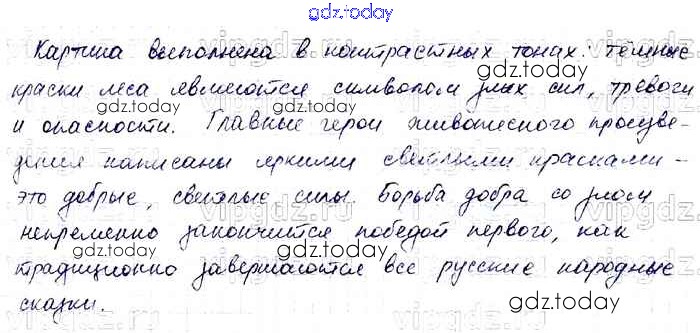 gdz.today
Картина выполнена в контрастных тонах: тёмные
краски леса являются символом злых сил, тревоги
и опасности. Главные герои живописного произве-
дения написаны яркими светлыми красками -
это добрые, светлые силы. Борьба добра со злом
непременно закончится победой первого, как
традиционно завершаются все русские народные
сказки.